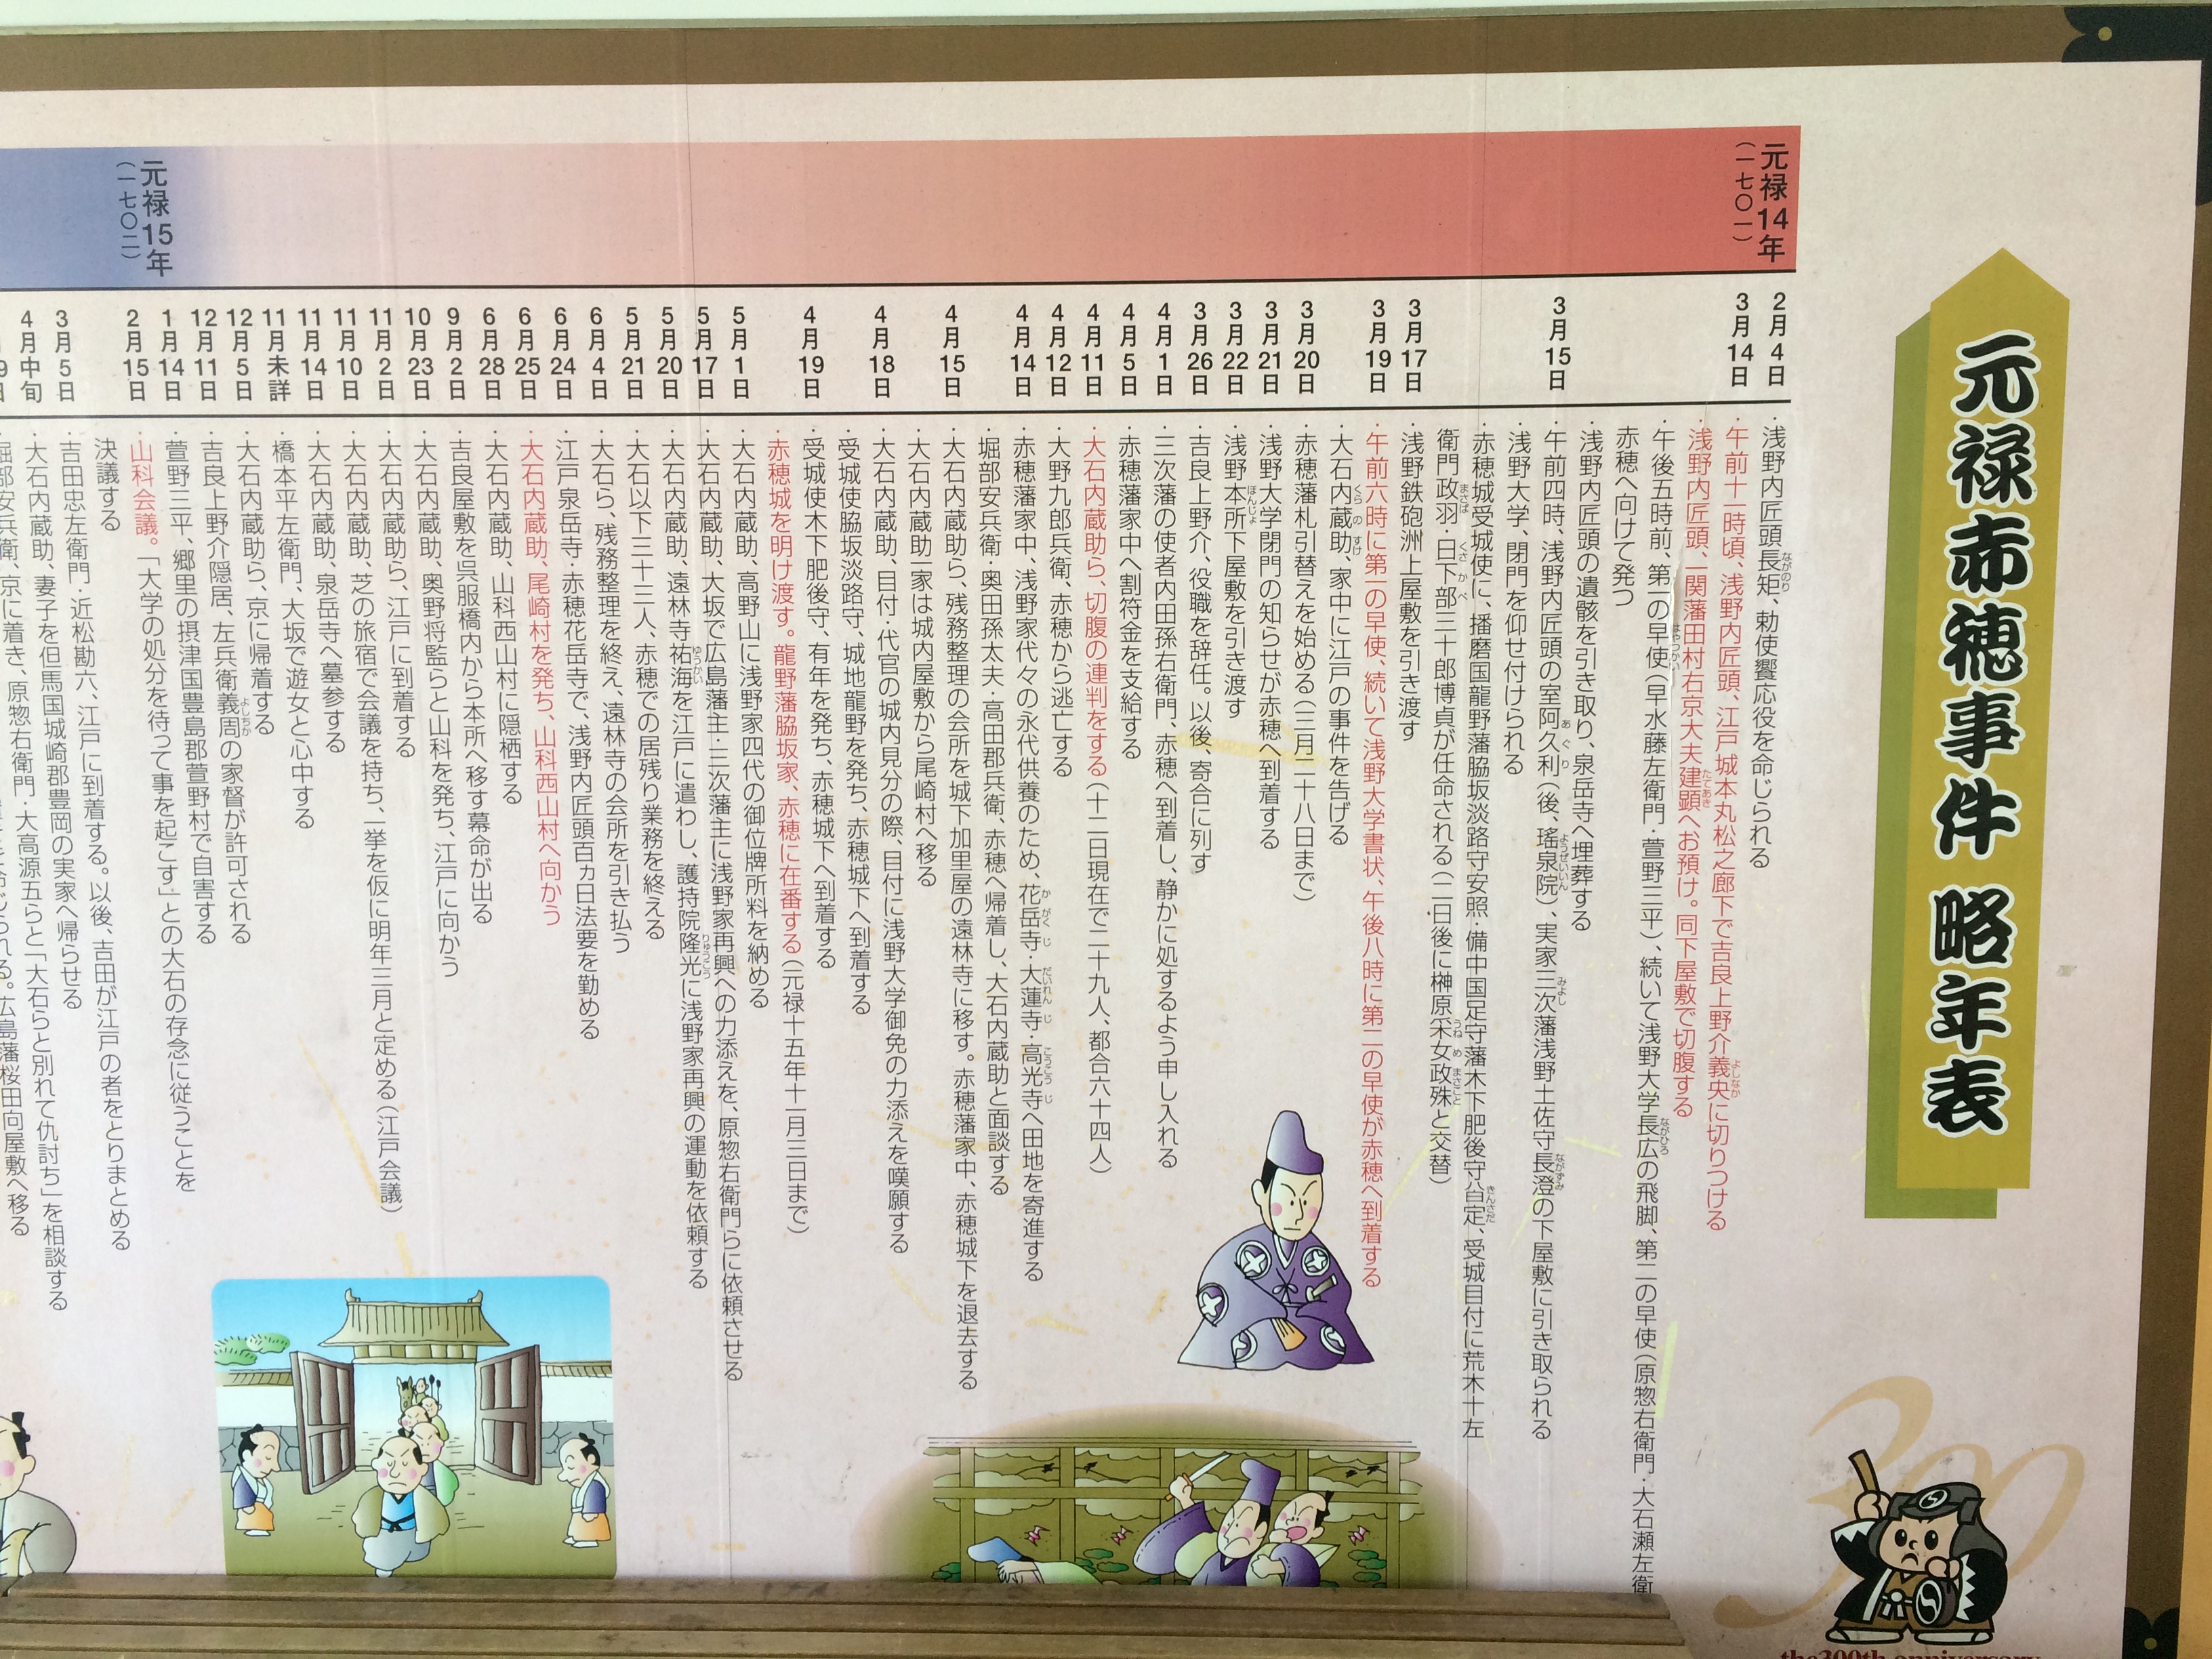 元禄赤穂事件 略年表
元禄14年
(一七〇一)
2月4日
・浅野内匠頭長矩、勅使饗応役を命じられる
3月14日
・午前十一時頃、浅野内匠頭、江戸城本丸松之廊下で吉良上野介義央に切りつける
・浅野内匠頭、一関藩田村右京大夫建顕へお預け。同下屋敷で切腹する
・午後五時前、第一の早使(早水藤左衛門・萱野三平)、続いて浅野大学長広の飛脚、第二の早使(原惣右衛門・大石瀬左衛
赤穂へ向けて発つ
・浅野内匠頭の遺骸を引き取り、泉岳寺へ埋葬する
3月15日
・午前四時、浅野内匠頭の室阿久利(後、瑤泉院)、実家三次藩浅野土佐守長澄の下屋敷に引き取られる
・浅野大学、閉門を仰せ付けられる
・赤穂城受城使に、播磨国龍野藩脇坂淡路守安照・備中国足守藩木下肥後守㒶定、受城目付に荒木十左
衛門政羽・日下部三十郎博貞が任命される(二日後に榊原采女政殊と交替)
3月17日
・浅野鉄砲洲上屋敷を引き渡す
3月19日
・午前六時に第一の早使、続いて浅野大学書状、午後八時に第二の早使が赤穂へ到着する
・大石内蔵助、家中に江戸の事件を告げる
3月20日
・赤穂藩札引替えを始める(三月二十八日まで)
3月21日
・浅野大学閉門の知らせが赤穂へ到着する
3月22日
・浅野本所下屋敷を引き渡す
3月26日
・吉良上野介、役職を辞任。以後、寄合に列す
4月1日
・三次藩の使者内田孫右衛門、赤穂へ到着し、静かに処するよう申し入れる
4月5日
・赤穂藩家中へ割符金を支給する
4月11日
・大石内蔵助ら、切腹の連判をする(十二日現在で二十九人、都合六十四人)
4月12日
・大野九郎兵衛、赤穂から逃亡する
4月14日
・赤穂藩家中、浅野家代々の永代供養のため、花岳寺・大蓮寺・高光寺へ田地を寄進する
・堀部安兵衛・奥田孫太夫・高田郡兵衛、赤穂へ帰着し、大石内蔵助と面談する
4月15日
・大石内蔵助ら、残務整理の会所を城下加里屋の遠林寺に移す。赤穂藩家中、赤穂城下を退去する
・大石内蔵助一家は城内屋敷から尾崎村へ移る
4月18日
・大石内蔵助、目付・代官の城内見分の際、目付に浅野大学御免の力添えを嘆願する
・受城使脇坂淡路守、城地龍野を発ち、赤穂城下へ到着する
4月19日
・受城使木下肥後守、有年を発ち、赤穂城下へ到着する
・赤穂城を明け渡す。龍野藩脇坂家、赤穂に在番する(元禄十五年十一月三日まで)
5月1日
・大石内蔵助、高野山に浅野家四代の御位牌所料を納める
5月17日
・大石内蔵助、大坂で広島藩主・三次藩主に浅野家再興への力添えを、原惣右衛門らに依頼させる
5月20日
・大石内蔵助、遠林寺祐海を江戸に遣わし、護持院隆光に浅野家再興の運動を依頼する
5月21日
・大石以下三十三人、赤穂での居残り業務を終える
6月4日
・大石ら、残務整理を終え、遠林寺の会所を引き払う
6月24日
・江戸泉岳寺・赤穂花岳寺で、浅野内匠頭百カ日法要を勤める
6月25日
・大石内蔵助、尾崎村を発ち、山科西山村へ向かう
6月28日
・大石内蔵助、山科西山村に隠栖する
9月2日
・吉良屋敷を呉服橋内から本所へ移す幕命が出る
10月23日
・大石内蔵助、奥野将監らと山科を発ち、江戸に向かう
11月2日
・大石内蔵助ら、江戸に到着する
11月10日
・大石内蔵助、芝の旅宿で会議を持ち、一挙を仮に明年三月と定める(江戸会議)
11月14日
・大石内蔵助、泉岳寺へ墓参する
11月未詳
・橋本平左衛門、大坂で遊女と心中する
12月5日
・大石内蔵助ら、京に帰着する
12月11日
・吉良上野介隠居、左兵衛義周の家督が許可される
元禄15年
(一七〇二)
1月14日
・萱野三平、郷里の摂津国豊島郡萱野村で自害する
2月15日
・山科会議。「大学の処分を待って事を起こす」との大石の存念に従うことを
決議する
3月5日
・吉田忠左衛門・近松勘六、江戸に到着する。以後、吉田が江戸の者をとりまとめる
4月中旬
・大石内蔵助、妻子を但馬国城崎郡豊岡の実家へ帰らせる
・堀部安兵衛、京に着き、原惣右衛門・大高源五らと「大石らと別れて仇討ち」を相談する
広島藩桜田向屋敷へ移る
300
the300th anniversary